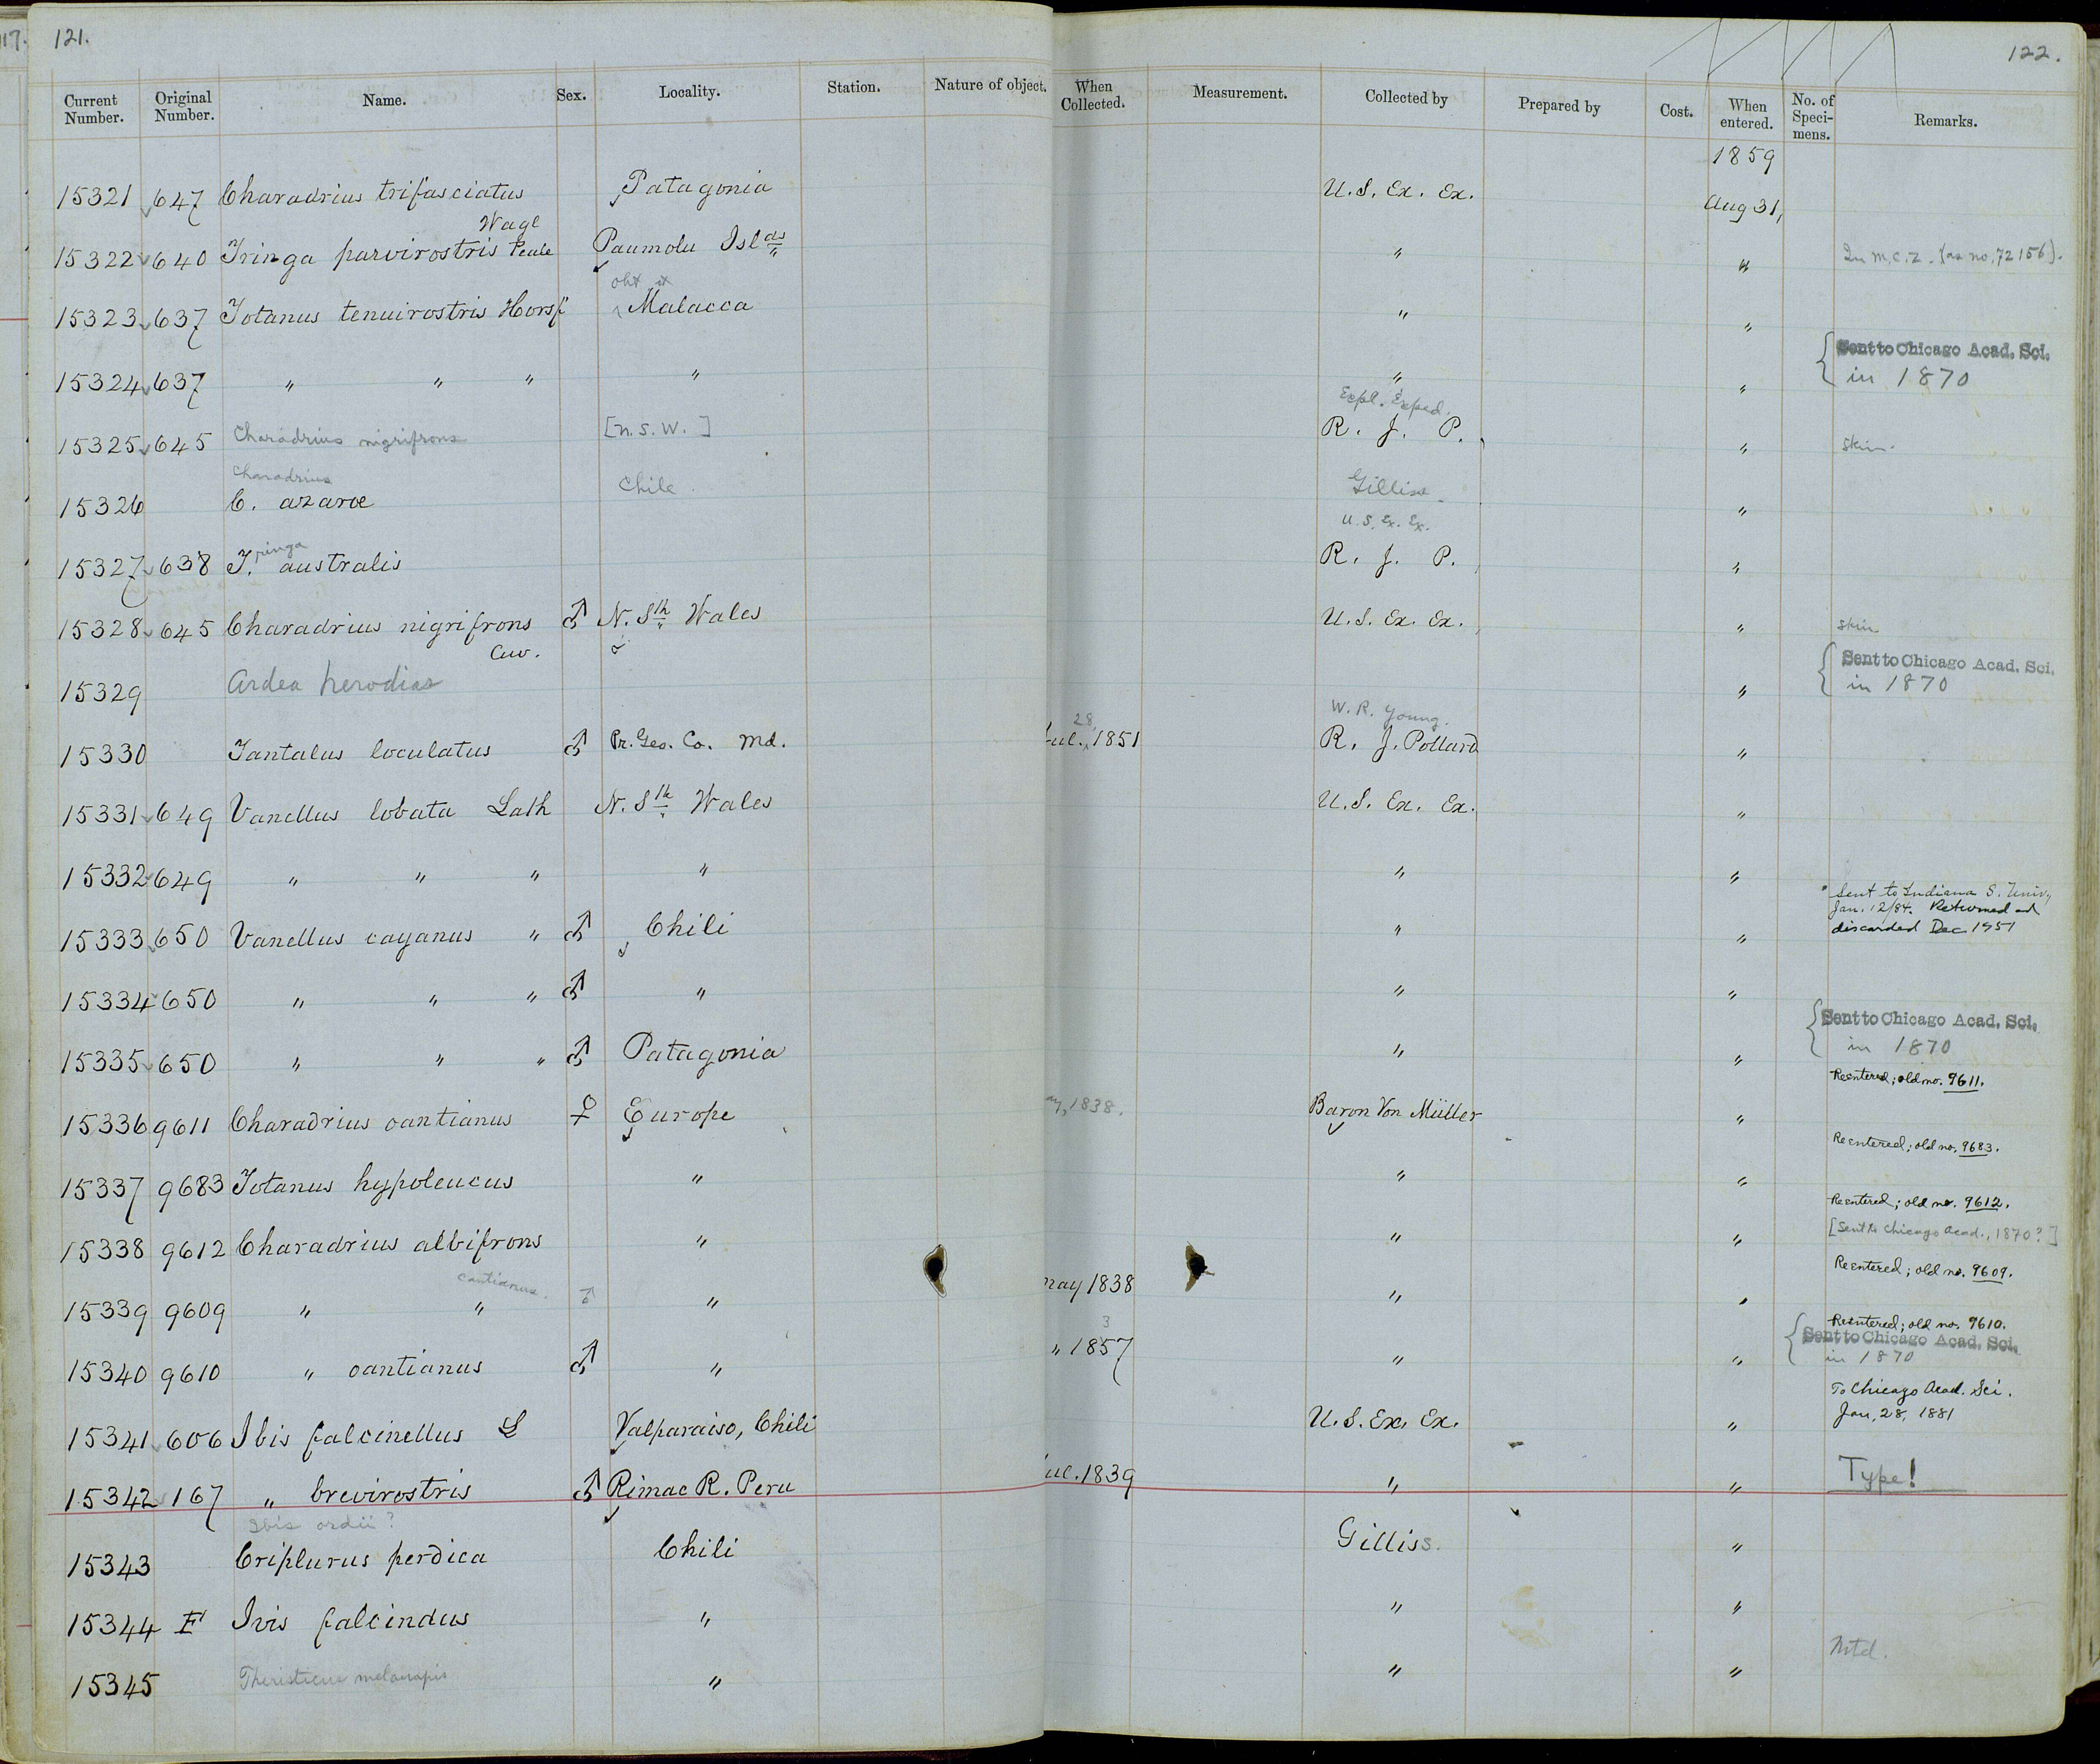 117. 121. 122.
Current Number. Original Number. Name. Sex. Locality. Station. Nature of object. When Collected. Measurement. Collected by Prepared by Cost. When entered. No. of Specimens. Remarks.
1859
15321 647 Charadrius trifasciatus Patagonia U.S. Ex. Ex. Aug 31,
Wagl
15322 640 Tringa parvirostris Peale Paumolu Islds " " In M.C.Z. (as no. 72156).
15323 637 Totanus tenuirostris Horsf Malacca " "
15324 637 " " " " " " { Sent to Chicago Acad. Sci.
in 1870
Expl. Exped.
15325 645 Charadrius nigrifrons [N.S.W.] R. J. P. " skin.
Charadrius
15326 C. azarae Chile Gilliss "
U.S. Ex. Ex.
15327 638 T.ringa australis R. J. P. "
15328 645 Charadrius nigrifrons ♂ N. Sth Wales U.S. Ex. Ex. " skin
Cuv.
15329 Ardea herodias " { Sent to Chicago Acad. Sci.
in 1870
28, W. R. Young.
15330 Tantalus loculatus ♂ Pr. Geo. Co. Md. Jul., 1851 R. J. Pollard "
15331 649 Vanellus lobata Lath N. Sth Wales U.S. Ex. Ex. "
15332 649 " " " " " "
15333 650 Vanellus cayanus " ♂ Chili " " Sent to Indiana S. Univ.,
Jan. 12/84. Returned and
discarded Dec 1951
15334 650 " " " ♂ " " "
15335 650 " " " ♂ Patagonia " " { Sent to Chicago Acad. Sci.
in 1870
15336 9611 Charadrius cantianus ♀ Europe ay, 1838. Baron Von Müller " Reentered; old no. 9611.
15337 9683 Totanus hypoleucus " " " Reentered; old no. 9683.
15338 9612 Charadrius albifrons " " " Reentered; old no. 9612.
[Sent to Chicago Acad., 1870?]
cantianus.
15339 9609 " " ♂ " may 1838 " " Reentered; old no. 9609.
3
15340 9610 " cantianus ♂ " " 1857 " " Reentered; old no. 9610.
{ Sent to Chicago Acad. Sci.
in 1870
15341 606 Ibis falcinellus L Valparaiso, Chili U.S. Ex. Ex. " To Chicago Acad. Sci.
Jan, 28, 1881
15342 167 " brevirostris ♂ Rimac R. Peru ul. 1839 " " Type!
Ibis ordii?
15343 Criplurus perdica Chili Gilliss. "
15344 F Ivis falcindus " " "
15345 Theristicus melanopis " " " Mtd.